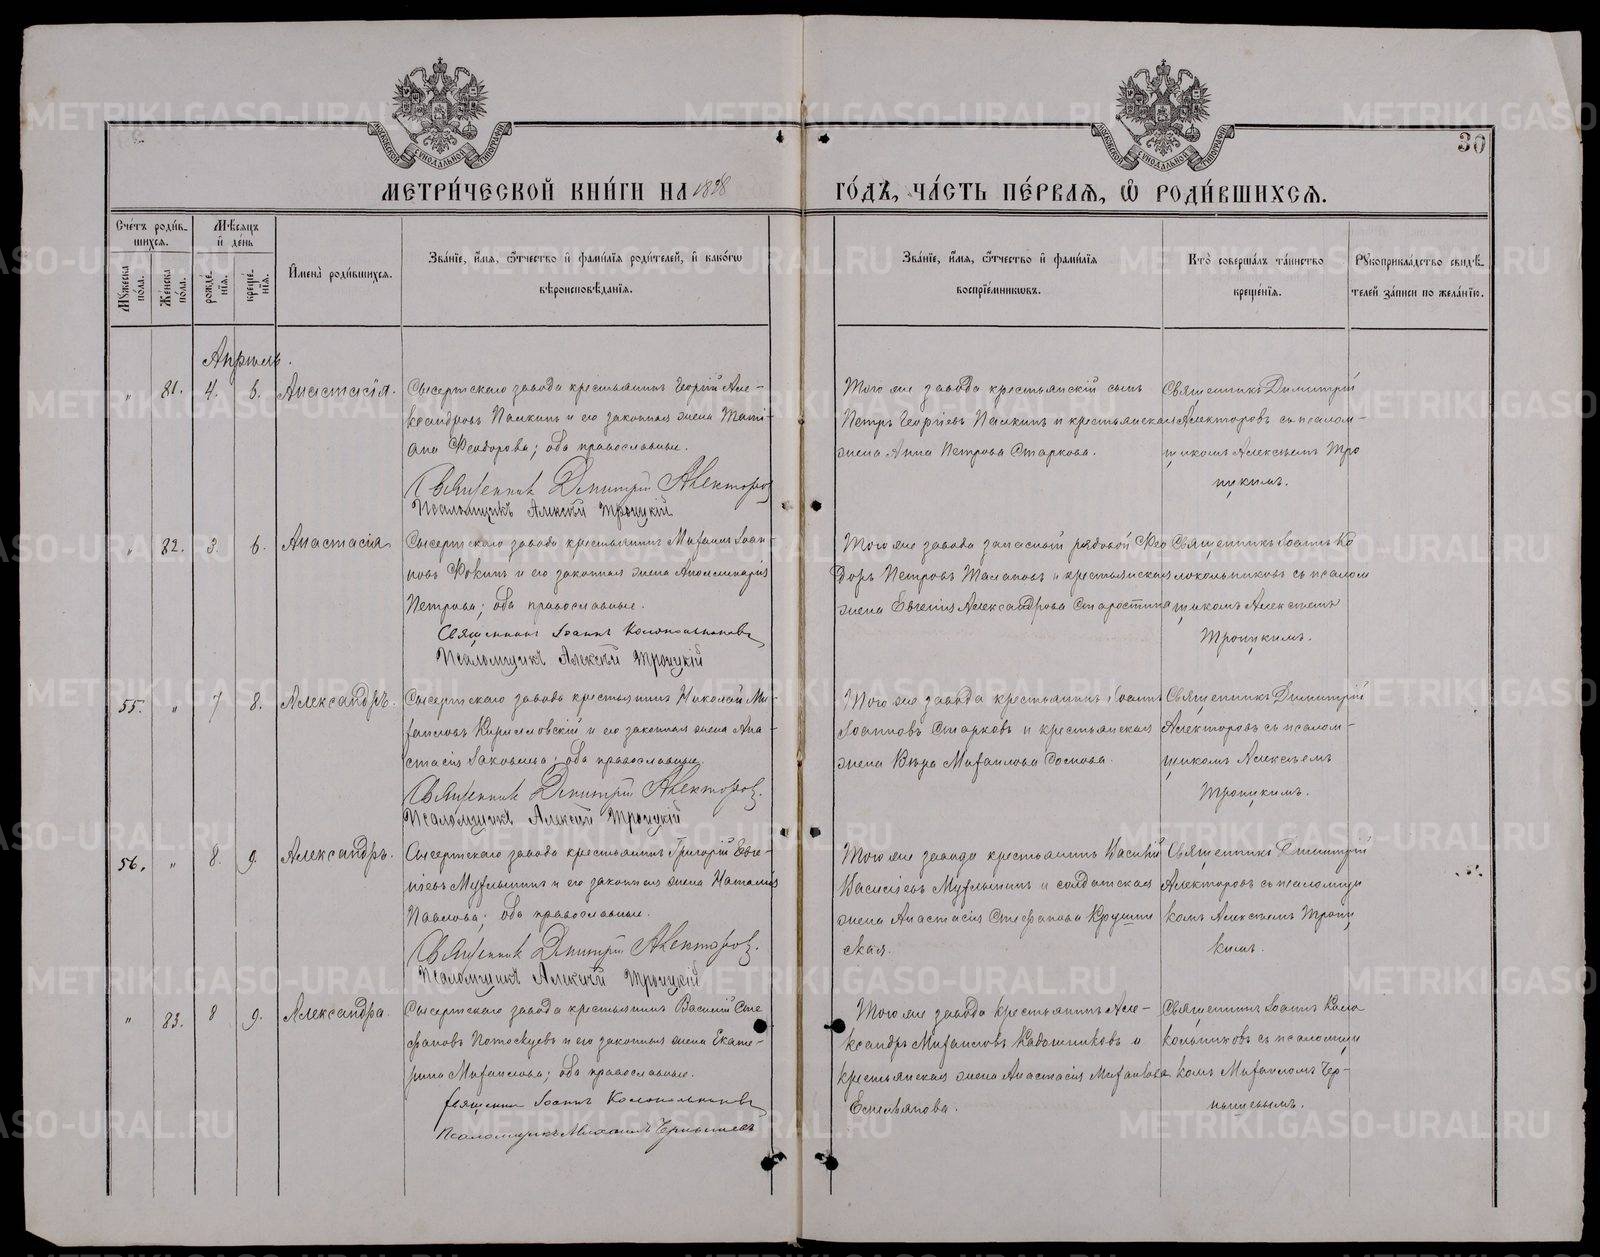 30
МЕТРИ́ЧЕСКОЙ КНИ́ГИ НА 1898 ГО́ДЪ, ЧА́СТЬ ПЕ́РВАЯ, Ѽ РОДИ́ВШИХСЯ.
Сче́тъ роди́в-
шихся.
Мѣ́сяцъ
и҆ де́нь
Мꙋ́жеска
по́ла.
Же́нска
по́ла.
рожде́-
нїя.
креще́-
нїя.
И҆мена̀ роди́вшихся.
Зва́нїе, и҆́мя, ѻ҆́тчество и҆ фами́лїя роди́телей, и҆ како́гѡ
вѣроисповѣ́данїя.
Зва́нїе, и҆́мя, ѻ҆́тчество и҆ фами́лїя
воспрїе́мникѡвъ.
Кто̀ соверша́лъ та́инство
креще́нїя.
Рꙋкоприкла́дство свидѣ́-
телей за́писи по жела́нїю.
Апрѣль.
" 81. 4. 6. Анастасія.
Сысертскаго завода крестьянинъ Георгій Але-
ксандровъ Палкинъ и его законная жена Тати-
ана Феодорова; оба православные.
Священникъ Димитрій Алекторовъ
Псаломщикъ Алексѣй Троицкій
Того же завода крестьянскій сынъ
Петръ Георгіевъ Палкинъ и крестьянская
жена Анна Петрова Старкова.
Священникъ Димитрій
Алекторовъ съ псалом-
щикомъ Алексѣемъ Тро
ицкимъ.
" 82. 3. 6. Анастасія
Сысертскаго завода крестьянинъ Михаилъ Іоан-
новъ Фокинъ и его законная жена Аполлинарія
Петрова; оба православные.
Священникъ Іоаннъ Колокольниковъ
Псаломщикъ Алексѣй Троицкій
Того же завода запасный рядовой Фео
доръ Петровъ Талановъ и крестьянская
жена Евгенія Александрова Старостина
Священникъ Іоаннъ Ко
локольниковъ съ псалом
щикомъ Алексѣемъ
Троицкимъ.
55. " 7 8. Александръ.
Сысертскаго завода крестьянинъ Николай Ми-
хаиловъ Кирилловскій и его законная жена Ана-
стасія Іаковлева; оба православные.
Священникъ Димитрій Алекторовъ.
Псаломщикъ Алексѣй Троицкій
Того же завода крестьянинъ Іоаннъ
Іоанновъ Старковъ и крестьянская
жена Вѣра Михаилова Соснова.
Священникъ Димитрій
Алекторовъ съ псалом-
щикомъ Алексѣемъ
Троицкимъ.
56. " 8. 9. Александръ.
Сысертскаго завода крестьянинъ Григорій Евге-
ніевъ Мухлынинъ и его законная жена Наталія
Павлова; оба православные.
Священникъ Димитрій Алекторовъ.
Псаломщикъ Алексѣй Троицкій
Того же завода крестьянинъ Василій
Васильевъ Мухлынинъ и солдатская
жена Анастасія Стефанова Крушин
ская.
Священникъ Димитрій
Алекторовъ съ псаломщи
комъ Алексѣемъ Троиц
кимъ.
" 83. 8 9. Александра.
Сысертскаго завода крестьянинъ Василій Сте
фановъ Потоскуевъ и его законная жена Екате-
рина Михаилова; оба православные.
Священникъ Іоаннъ Колокольниковъ
Псаломщикъ Михаилъ Чернышевъ
Того же завода крестьянинъ Але-
ксандръ Михаиловъ Кадошниковъ и
крестьянская жена Анастасія Михаилова
Емельянова.
Священникъ Іоаннъ Коло
кольниковъ съ псаломщи
комъ Михаиломъ Чер-
нышевымъ.
METRIKI.GASO-URAL.RU